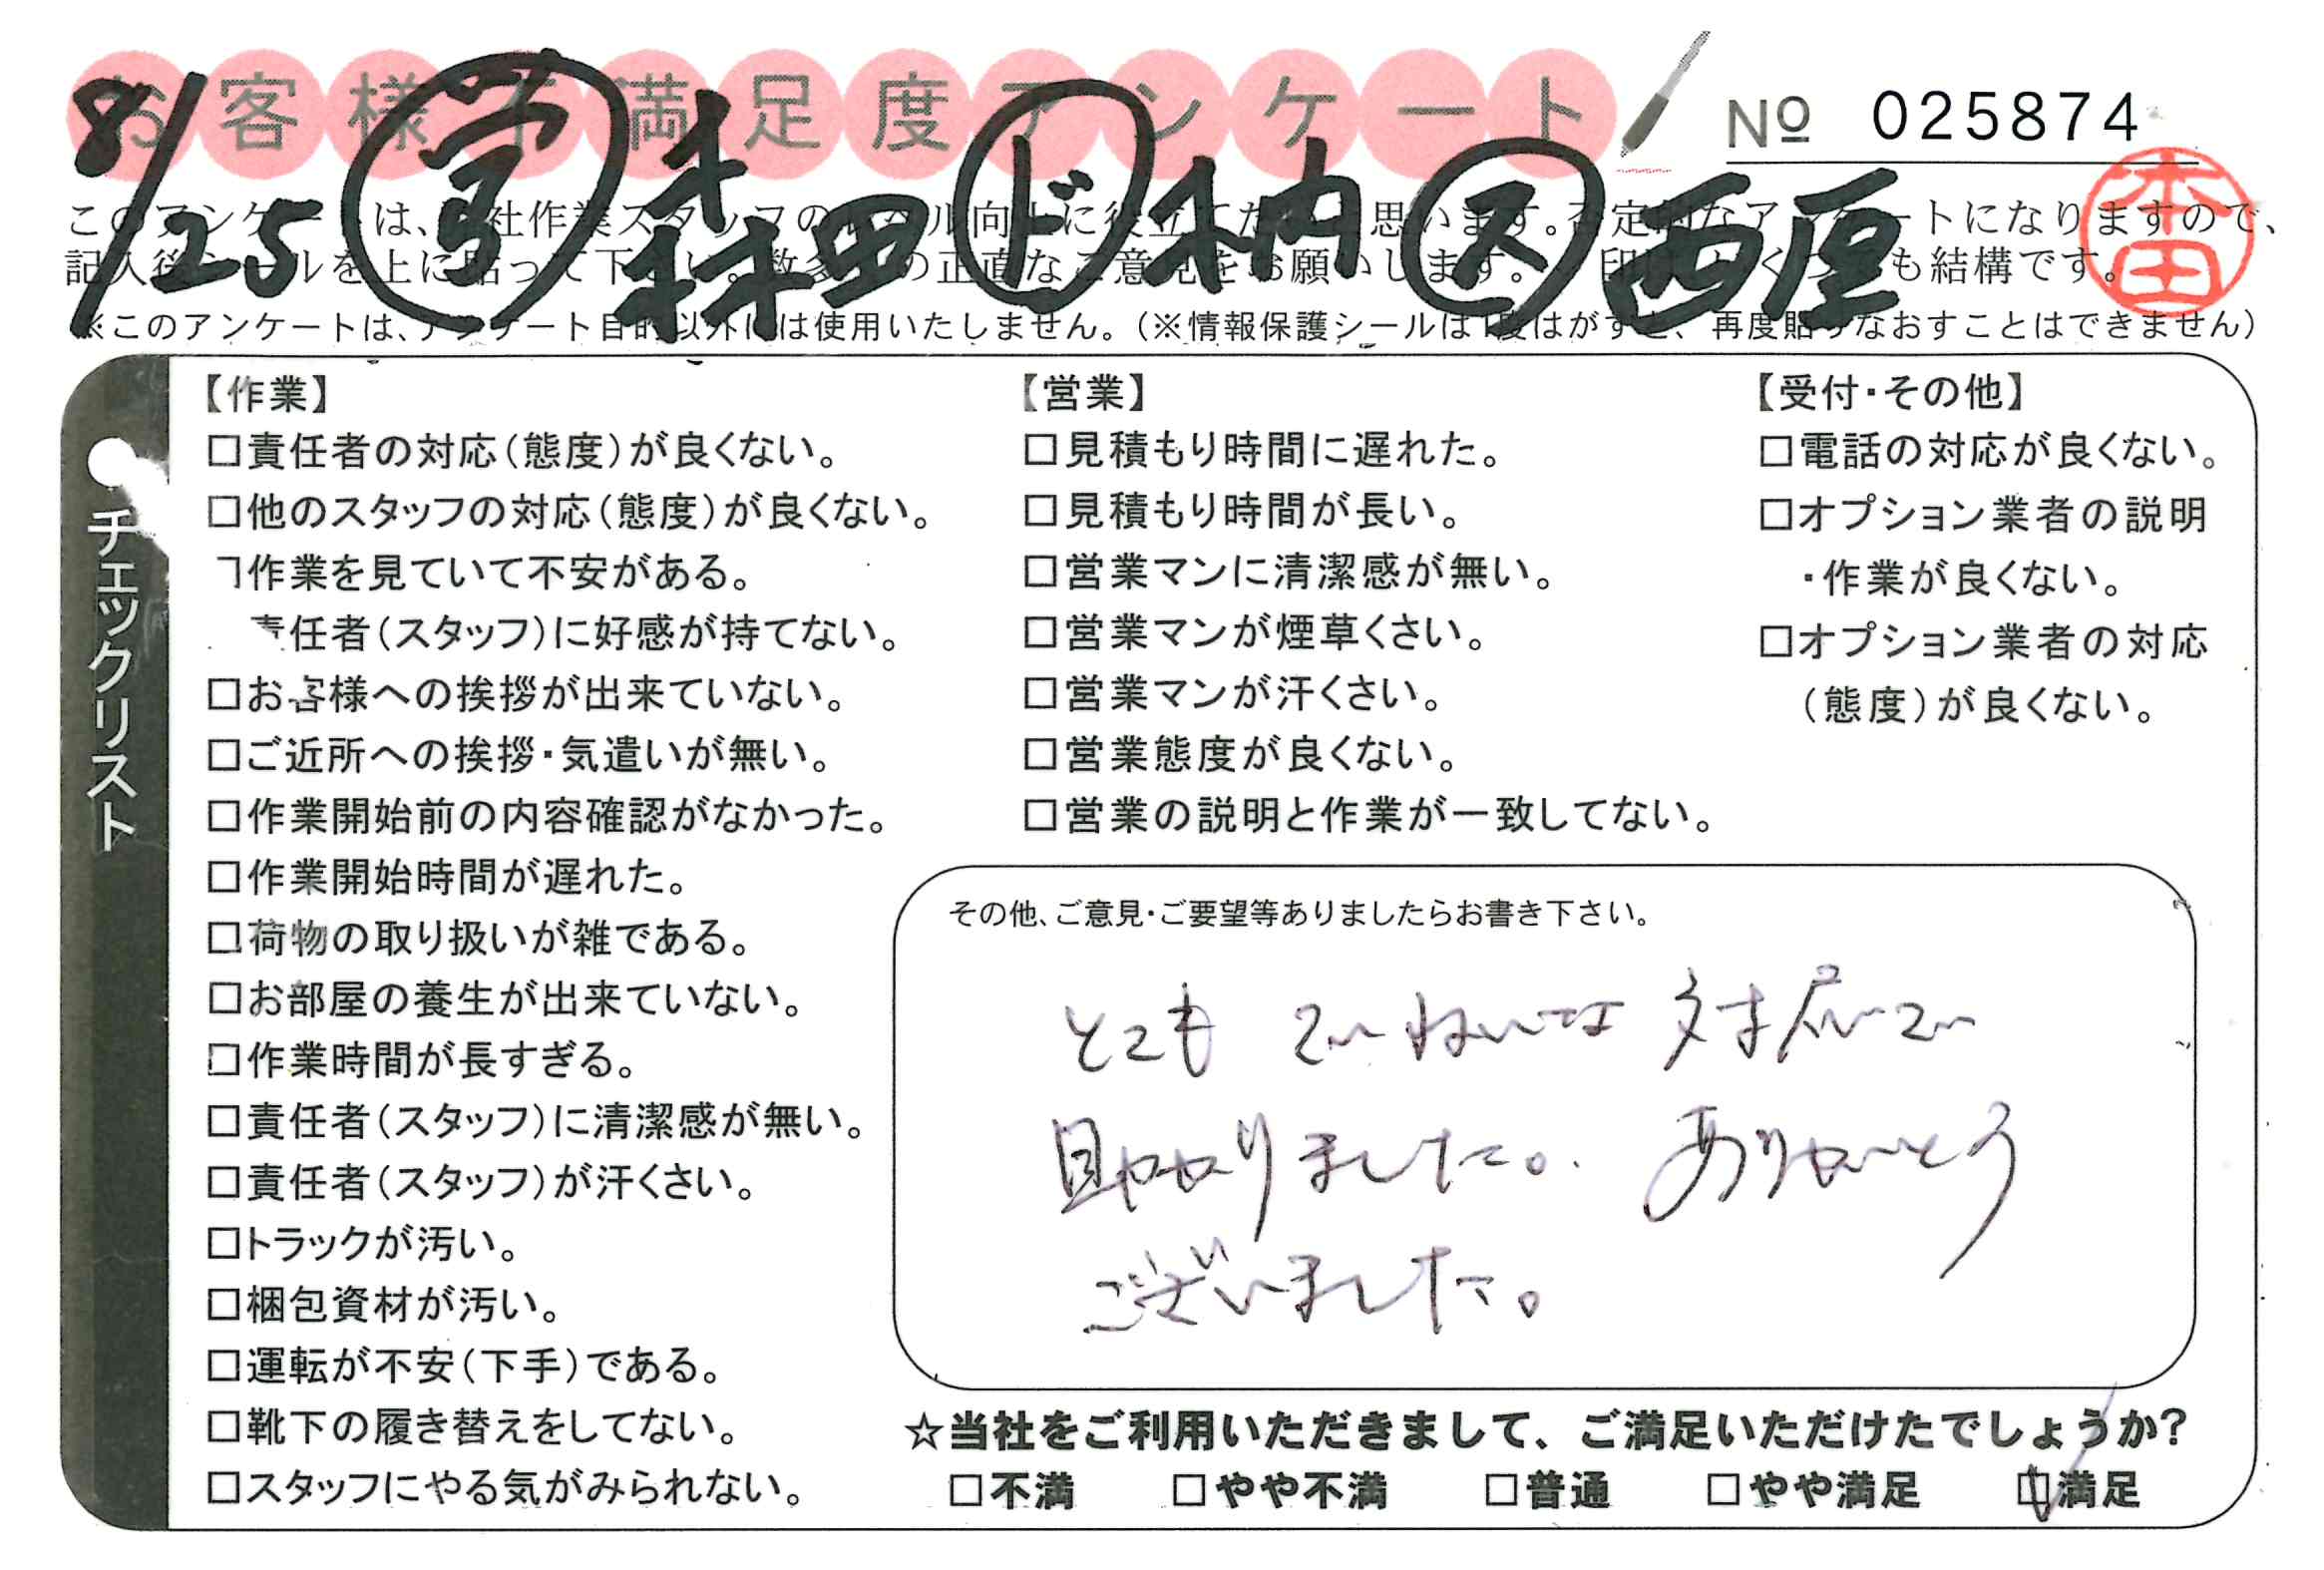 お客様不満足度アンケート
No 025874
8/25 営 森田 ド 柄 ス 西屋
本田
記入後シールを上に貼って下さい。数多くの正直なご意見をお願いします。
※このアンケートは、アンケート目的以外には使用いたしません。(※情報保護シールは1度はがすと、再度貼りなおすことはできません)
チェックリスト
【作業】
□責任者の対応(態度)が良くない。
□他のスタッフの対応(態度)が良くない。
□作業を見ていて不安がある。
責任者(スタッフ)に好感が持てない。
□お客様への挨拶が出来ていない。
□ご近所への挨拶・気遣いが無い。
□作業開始前の内容確認がなかった。
□作業開始時間が遅れた。
□荷物の取り扱いが雑である。
□お部屋の養生が出来ていない。
□作業時間が長すぎる。
□責任者(スタッフ)に清潔感が無い。
□責任者(スタッフ)が汗くさい。
□トラックが汚い。
□梱包資材が汚い。
□運転が不安(下手)である。
□靴下の履き替えをしてない。
□スタッフにやる気がみられない。
【営業】
□見積もり時間に遅れた。
□見積もり時間が長い。
□営業マンに清潔感が無い。
□営業マンが煙草くさい。
□営業マンが汗くさい。
□営業態度が良くない。
□営業の説明と作業が一致してない。
【受付・その他】
□電話の対応が良くない。
□オプション業者の説明
・作業が良くない。
□オプション業者の対応
(態度)が良くない。
その他、ご意見・ご要望等ありましたらお書き下さい。
とても ていねいな 対応で
助かりました。ありがとう
ございました。
☆当社をご利用いただきまして、ご満足いただけたでしょうか?
□不満 □やや不満 □普通 □やや満足 ☑満足